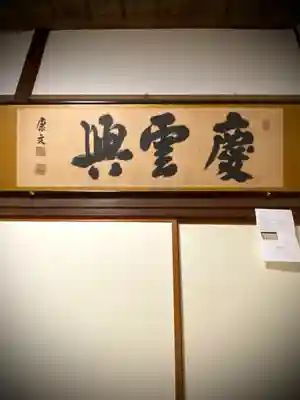 慶雲興
康文